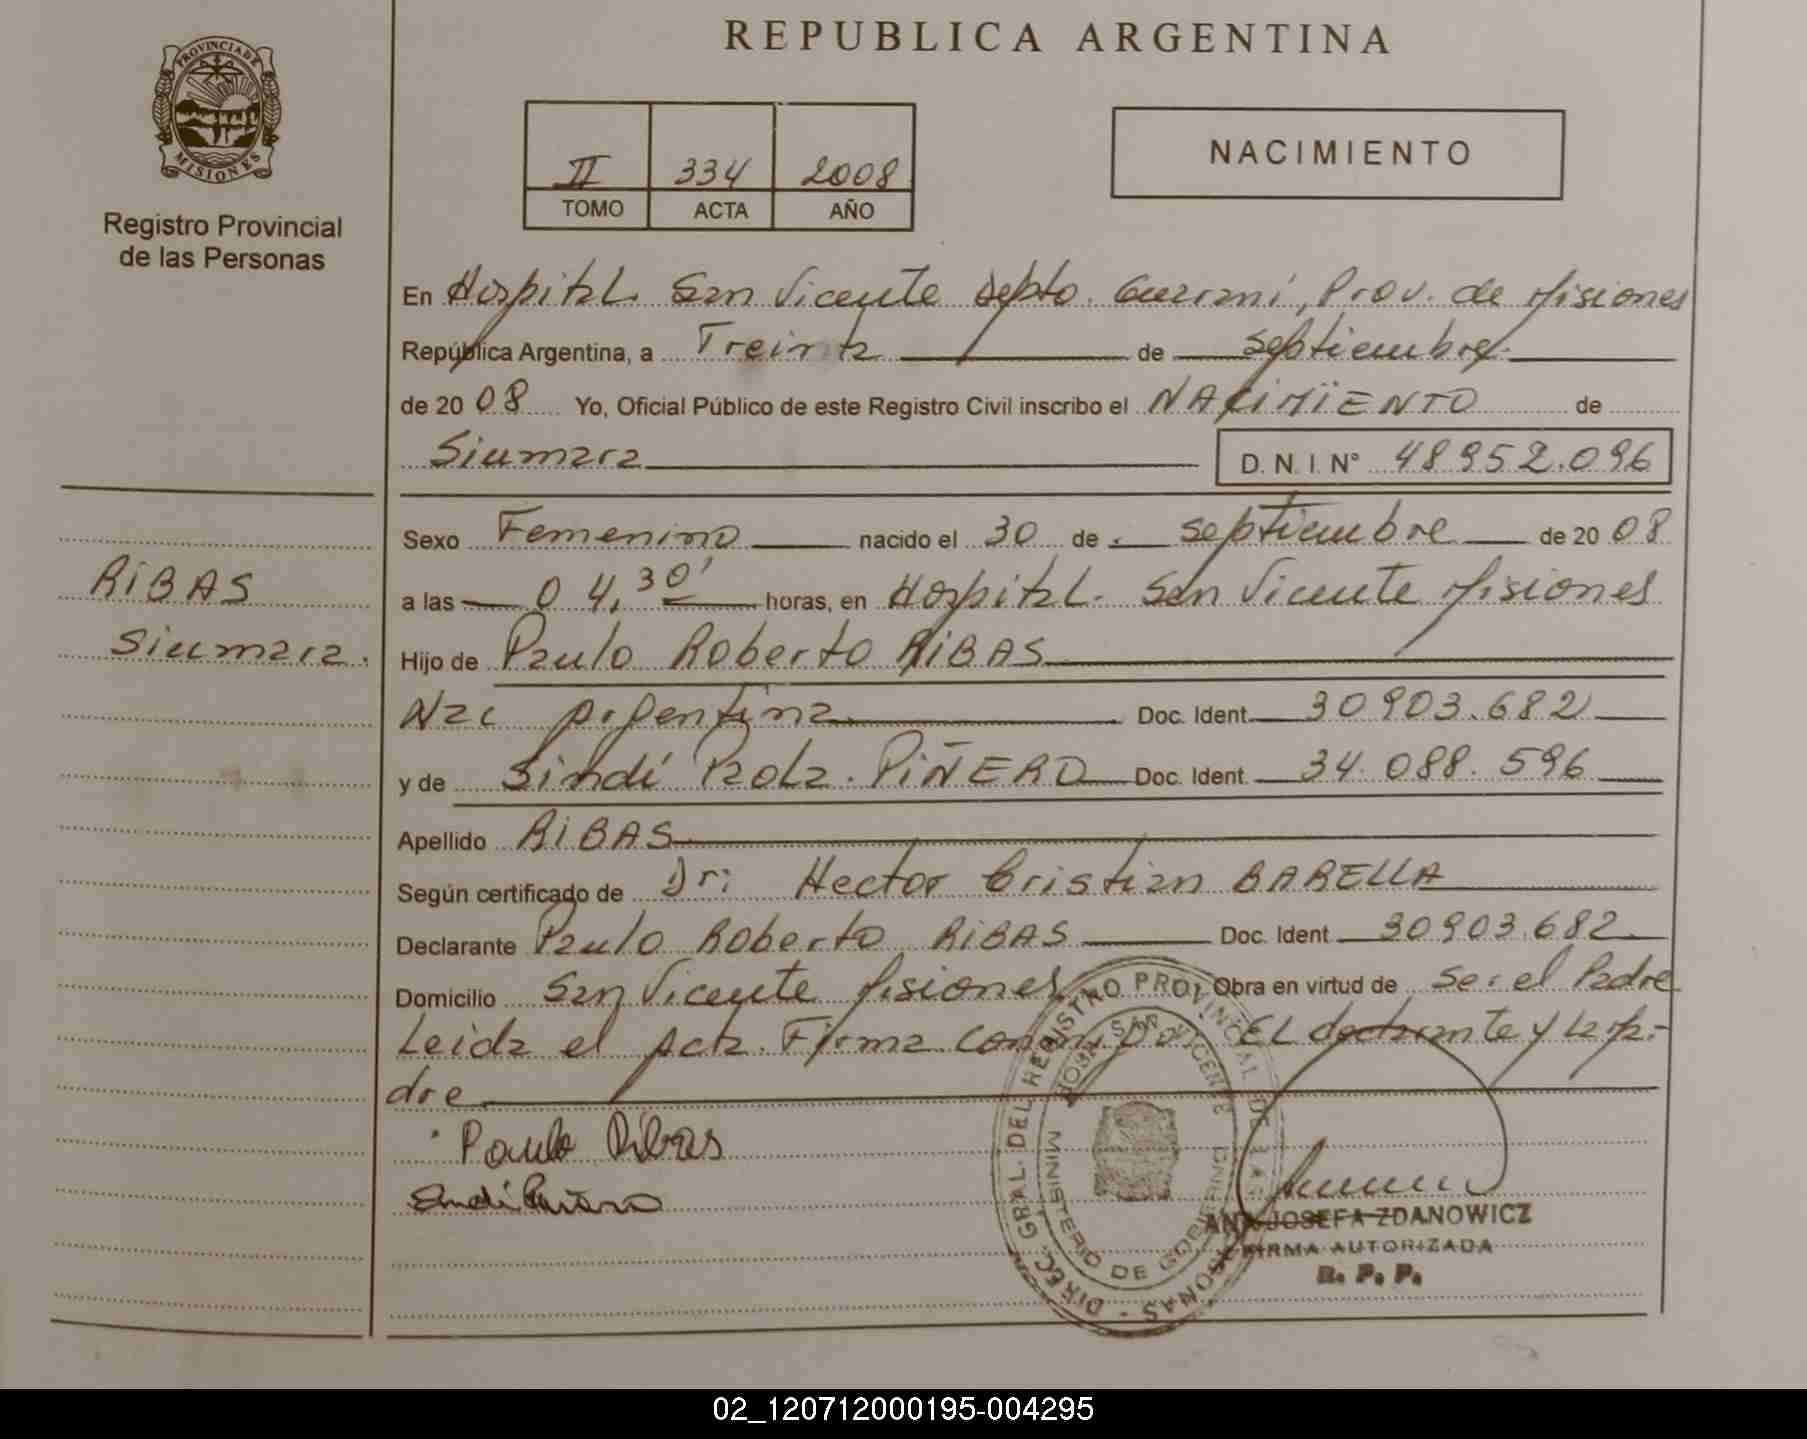 REPUBLICA ARGENTINA
PROVINCIA DE
MISIONES
Registro Provincial
de las Personas
II 334 2008
TOMO ACTA AÑO
NACIMIENTO
En Hospital San Vicente Depto. Guarani, Prov. de Misiones
República Argentina, a Treinta de septiembre
de 2008 Yo, Oficial Público de este Registro Civil inscribo el NACIMIENTO de
Siumara D. N. I. N° 48952.096
Sexo Femenino nacido el 30 de septiembre de 2008
a las 04,30' horas, en Hospital San Vicente Misiones
RIBAS
Siumara.
Hijo de Paulo Roberto RIBAS
Nac Argentina Doc. Ident. 30903.682
y de Sindí Paola PIÑERO Doc. Ident. 34.088.596
Apellido RIBAS
Según certificado de Dr: Hector Cristian BARELLA
Declarante Paulo Roberto RIBAS Doc. Ident 30903.682.
Domicilio San Vicente Misiones Obra en virtud de Ser el Padre
Leida el Acta. Firma conmigo EL declarante y la Ma-
dre
Paulo Ribas
Sindi Piñero
DIREC. GRAL. DEL REGISTRO PROVINCIAL DE LAS PERSONAS
MINISTERIO DE GOBIERNO
HOSP. SAN VICENTE
ANA JOSEFA ZDANOWICZ
FIRMA AUTORIZADA
R. P. P.
02_120712000195-004295